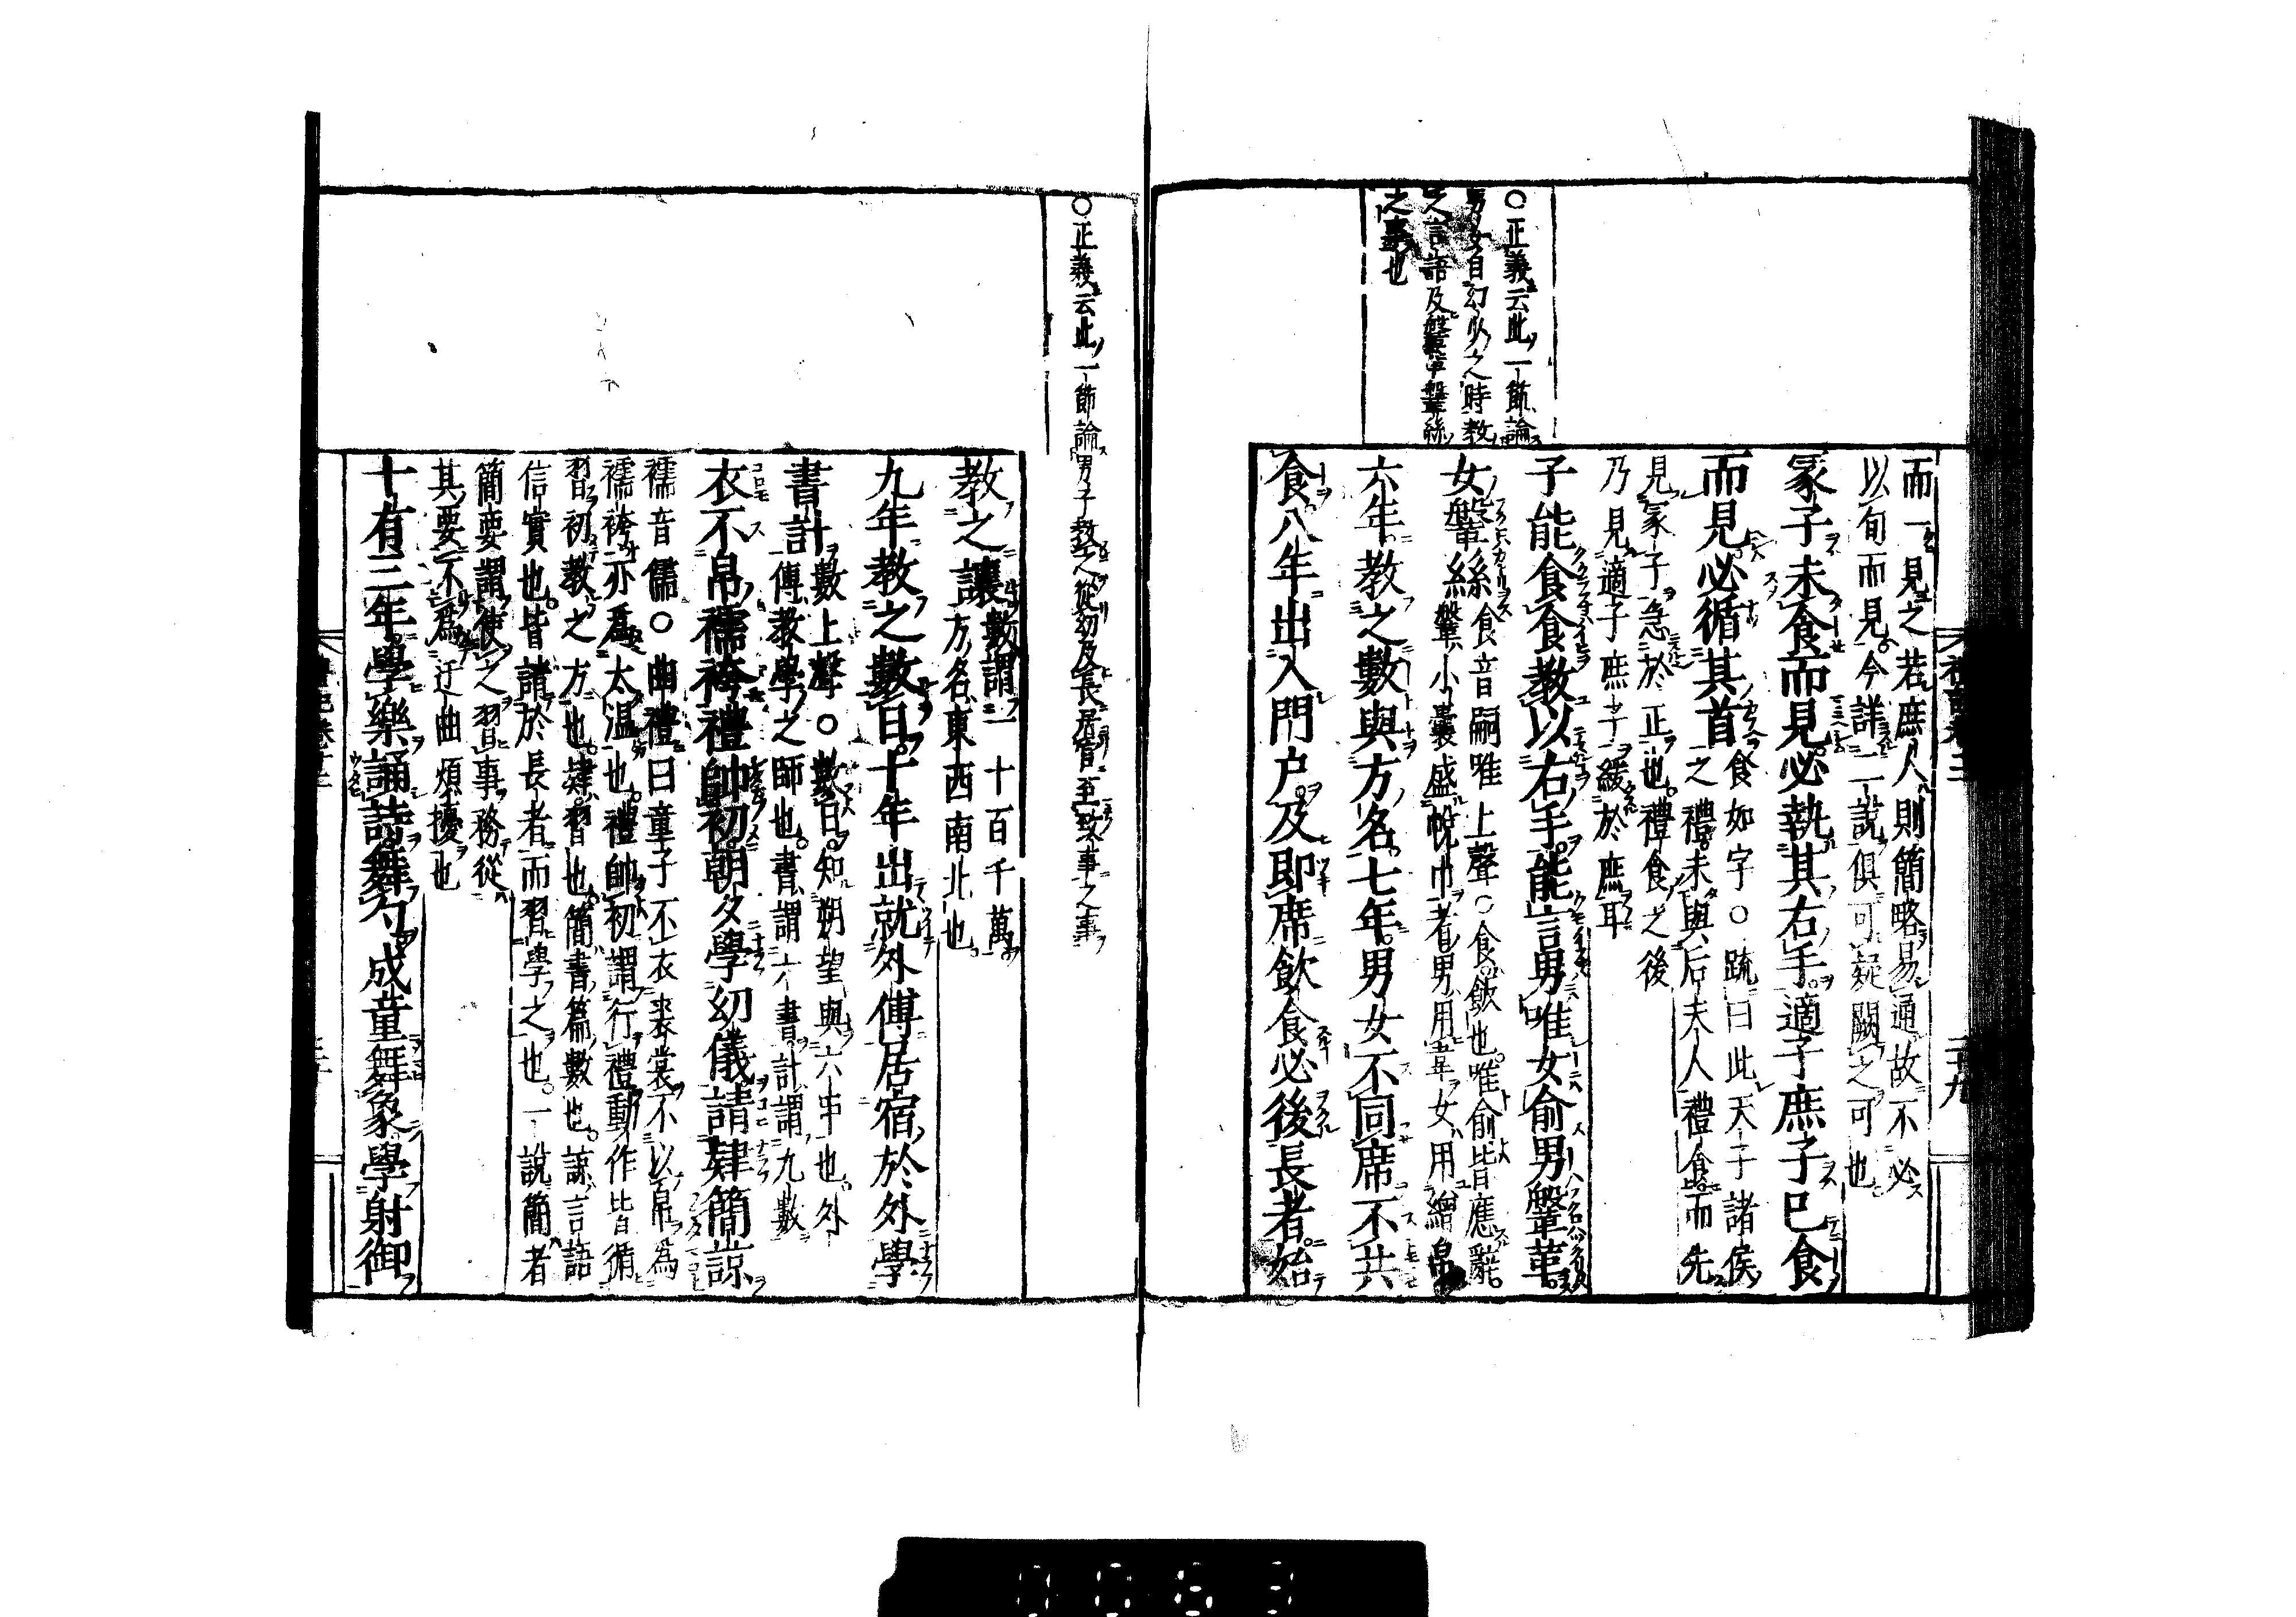 ○正義云此一節論
男女自幼少之時教
之言語及鞶革鞶絲
之事也
而一見之若庶人則簡略易通故不必
以旬而見今詳二說俱可疑闕之可也
冢子未食而見必執其右手適子庶子已食
而見必循其首
食如字○疏曰此天子諸侯
之禮未與后夫人禮食而先
見冢子急於正也禮食之後
乃見適子庶子緩於庶耳
子能食食教以右手能言男唯女俞男鞶革
女鞶絲
食音嗣唯上聲○食飲也唯俞皆應辭
鞶小囊盛帨巾者男用韋女用繒帛
六年教之數與方名七年男女不同席不共
食八年出入門户及即席飲食必後長者始
○正義云此一節論男子教之從幼及長居官至致事之事
教之讓
數謂一十百千萬
方名東西南北也
九年教之數日十年出就外傅居宿於外學
書計
數上聲○數日知朔望與六甲也外
傅教學之師也書謂六書計謂九數
衣不帛襦袴禮帥初朝夕學幼儀請肄簡諒
襦音儒○曲禮曰童子不衣裘裳不以帛為
襦袴亦爲太温也禮帥初謂行禮動作皆循
習初教之方也肄習也簡書篇數也諒言語
信實也皆請於長者而習學之也一說簡者
簡要謂使之習事務從
其要不爲迂曲煩擾也
十有三年學樂誦詩舞勺成童舞象學射御